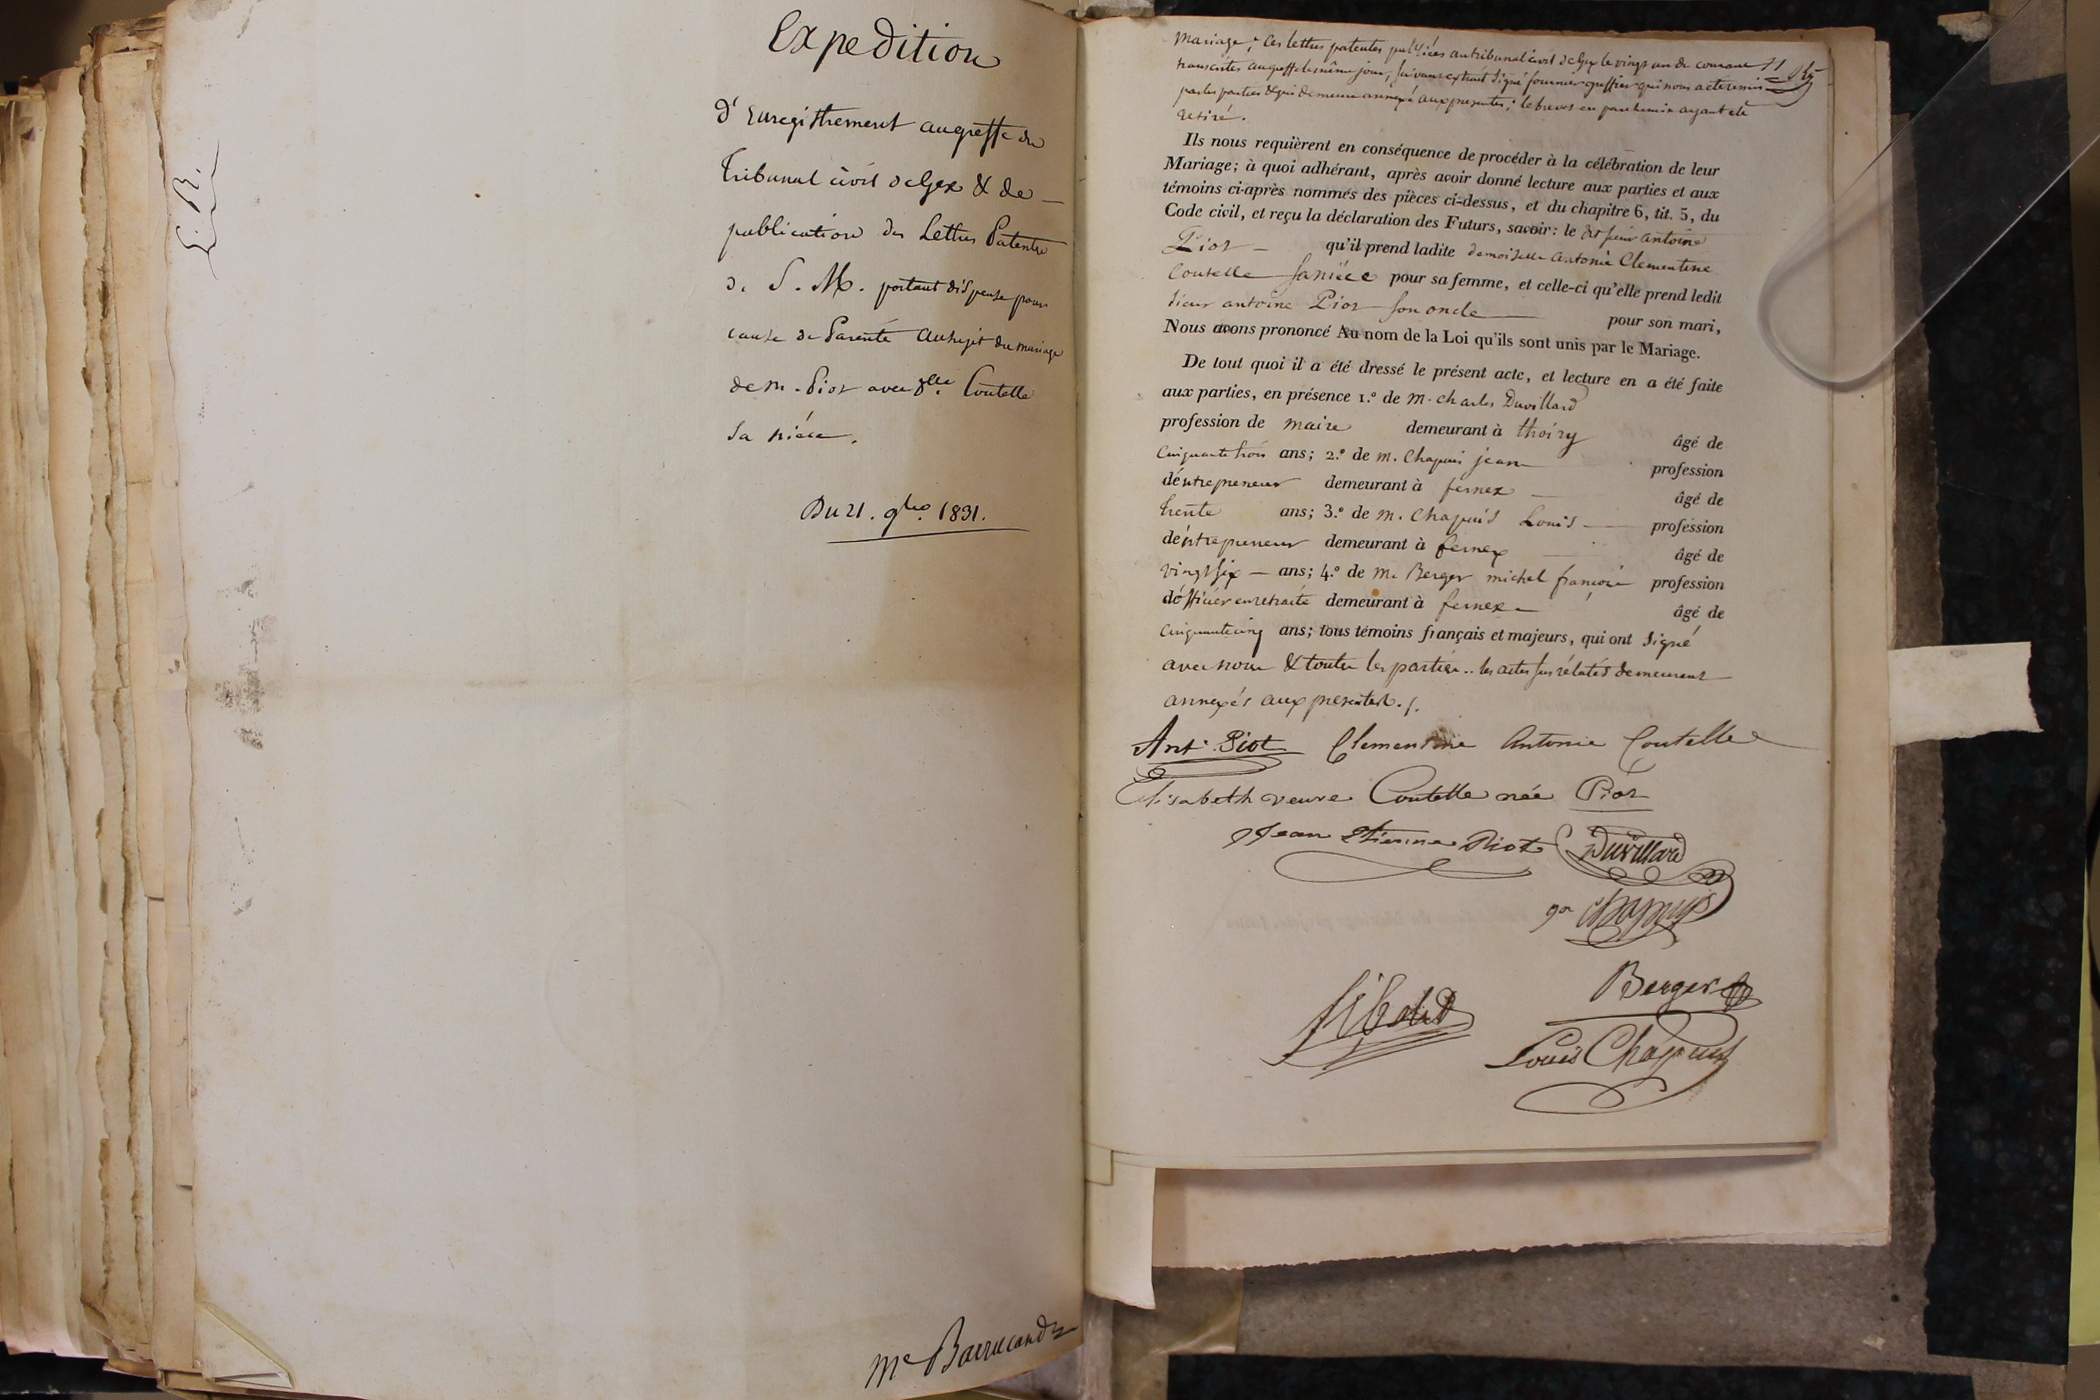 Expedition
d'Enregistrement au greffe du
Tribunal civil de Gex & de
publication des Lettres Patentes
de S. M. portant dispense pour
cause de Parenté au sujet du mariage
de m. Piot avec dlle Coutelle
sa nièce.
Du 21. 9bre 1831.
E. R.
Me Barrucand
mariage; ces lettres patentes publiées au tribunal civil de Gex le vingt un du courant
transcrites au greffe le même jour, suivant extrait signé fournier greffier qui nous a été remis
par les parties & qui demeure annexé aux presentes; le brevet en parchemin ayant été
retiré.
Ils nous requièrent en conséquence de procéder à la célébration de leur
Mariage; à quoi adhérant, après avoir donné lecture aux parties et aux
témoins ci-après nommés des pièces ci-dessus, et du chapitre 6, tit. 5, du
Code civil, et reçu la déclaration des Futurs, savoir: le dit sieur antoine
Piot — qu'il prend ladite demoiselle Antonie Clementine
Coutelle sa nièce pour sa femme, et celle-ci qu'elle prend ledit
sieur antoine Piot son oncle — pour son mari,
Nous avons prononcé Au nom de la Loi qu'ils sont unis par le Mariage.
De tout quoi il a été dressé le présent acte, et lecture en a été faite
aux parties, en présence 1.° de m. charles Duvillard
profession de maire demeurant à thoiry âgé de
cinquante trois ans; 2.° de m. Chapuis jean — profession
d'entrepreneur demeurant à fernex — âgé de
trente ans; 3.° de m. Chapuis Louis — profession
d'entrepreneur demeurant à fernex — âgé de
vingt six — ans; 4.° de m. Berger michel françois profession
d'officier en retraite demeurant à fernex — âgé de
cinquante cinq ans; tous témoins français et majeurs, qui ont signé
avec nous & toutes les parties.. les actes sus rélatés demeurent
annexés aux presentes./.
Ant. Piot Clementine Antonie Coutelle
Elisabeth veuve Coutelle née Piot
Jean Etienne Piot Duvillard
Chapuis
Berger
Louis Chapuis